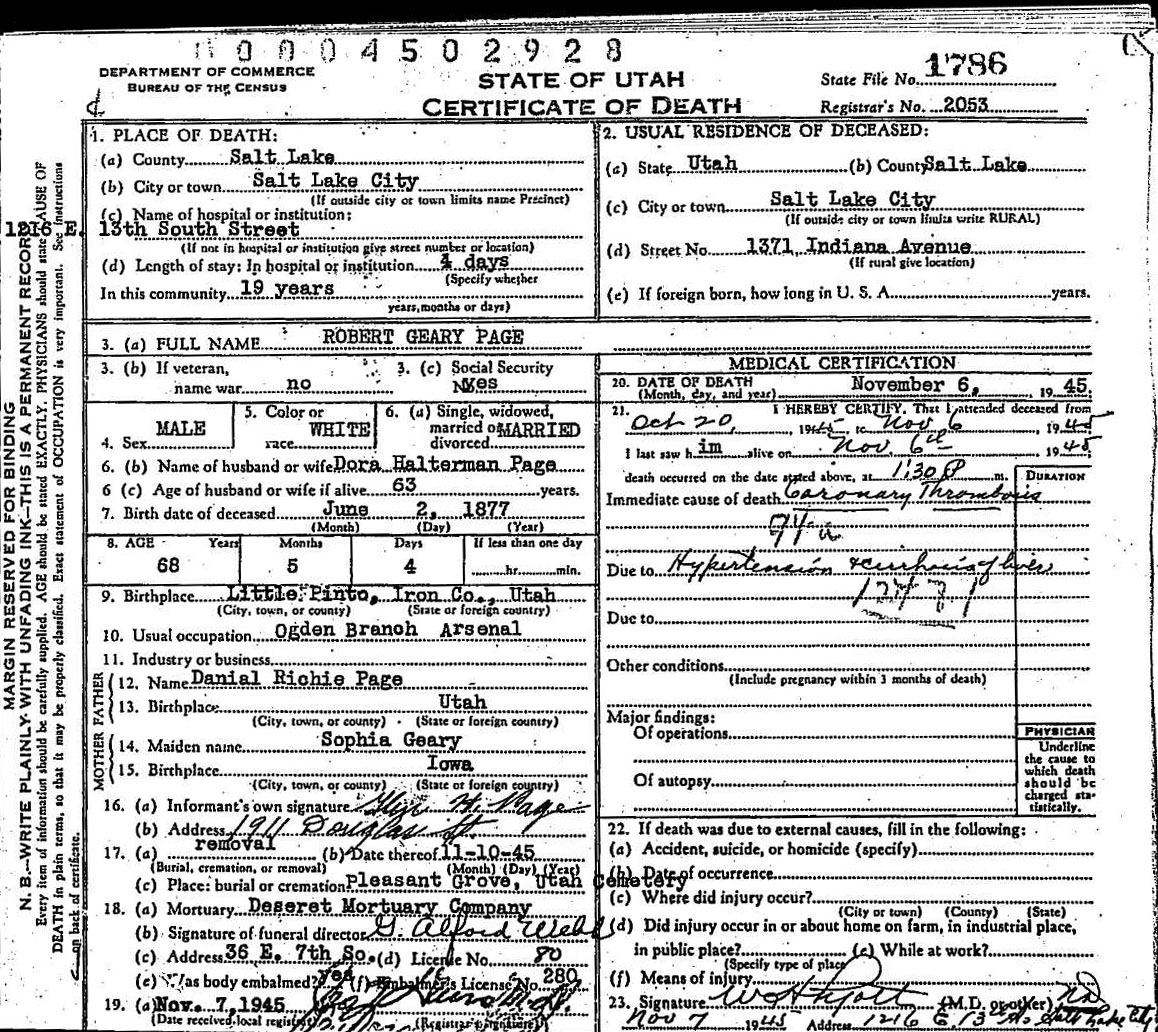 0004502928
DEPARTMENT OF COMMERCE
BUREAU OF THE CENSUS
STATE OF UTAH
CERTIFICATE OF DEATH
State File No. 1786
Registrar's No. 2053
MARGIN RESERVED FOR BINDING
N. B.—WRITE PLAINLY WITH UNFADING INK—THIS IS A PERMANENT RECORD
Every item of information should be carefully supplied. AGE should be stated EXACTLY. PHYSICIANS should state CAUSE OF
DEATH in plain terms, so that it may be properly classified. Exact statement of OCCUPATION is very important. See instructions
on back of certificate.
1. PLACE OF DEATH:
(a) County Salt Lake
(b) City or town Salt Lake City
(If outside city or town limits name Precinct)
(c) Name of hospital or institution:
1216 E. 13th South Street
(If not in hospital or institution give street number or location)
(d) Length of stay: In hospital or institution 4 days
(Specify whether
In this community 19 years
years, months or days)
2. USUAL RESIDENCE OF DECEASED:
(a) State Utah (b) County Salt Lake
(c) City or town Salt Lake City
(If outside city or town limits write RURAL)
(d) Street No. 1371 Indiana Avenue
(If rural give location)
(e) If foreign born, how long in U. S. A. years.
3. (a) FULL NAME ROBERT GEARY PAGE
3. (b) If veteran, name war no
3. (c) Social Security No. yes
4. Sex MALE
5. Color or race WHITE
6. (a) Single, widowed, married or divorced MARRIED
6. (b) Name of husband or wife Dora Halterman Page
6 (c) Age of husband or wife if alive 63 years.
7. Birth date of deceased June 2, 1877
(Month) (Day) (Year)
8. AGE Years Months Days If less than one day
68 5 4 hr. min.
9. Birthplace Little Pinto, Iron Co., Utah
(City, town, or county) (State or foreign country)
10. Usual occupation Ogden Branch Arsenal
11. Industry or business
FATHER
12. Name Danial Richie Page
13. Birthplace Utah
(City, town, or county) (State or foreign country)
MOTHER
14. Maiden name Sophia Geary
15. Birthplace Iowa
(City, town, or county) (State or foreign country)
16. (a) Informant's own signature H. Page
(b) Address 1911 Douglas St.
17. (a) removal (b) Date thereof 11-10-45
(Burial, cremation, or removal) (Month) (Day) (Year)
(c) Place: burial or cremation Pleasant Grove, Utah Cemetery
18. (a) Mortuary Deseret Mortuary Company
(b) Signature of funeral director G. Alford Webb
(c) Address 36 E. 7th So. (d) License No. 80
(e) Was body embalmed? yes (f) Embalmer's License No. 280
19. (a) Nov. 7, 1945
(Date received local registrar) (Registrar's signature)
MEDICAL CERTIFICATION
20. DATE OF DEATH November 6, 1945.
(Month, day, and year)
21. I HEREBY CERTIFY, That I attended deceased from
Oct 20, 1945 to Nov 6 1945
I last saw him alive on Nov. 6th 1945
death occurred on the date stated above, at 1:30 P m.
DURATION
Immediate cause of death Coronary Thrombosis
94-a
Due to Hypertension & cirrhosis of liver
Due to
Other conditions
(Include pregnancy within 3 months of death)
Major findings:
Of operations
Of autopsy
PHYSICIAN
Underline
the cause to
which death
should be
charged sta-
tistically.
22. If death was due to external causes, fill in the following:
(a) Accident, suicide, or homicide (specify)
(b) Date of occurrence
(c) Where did injury occur?
(City or town) (County) (State)
(d) Did injury occur in or about home on farm, in industrial place,
in public place? (e) While at work?
(Specify type of place)
(f) Means of injury
23. Signature (M.D. or other) MD
Nov 7 1945 Address 1216 E 13th So. Salt Lake City